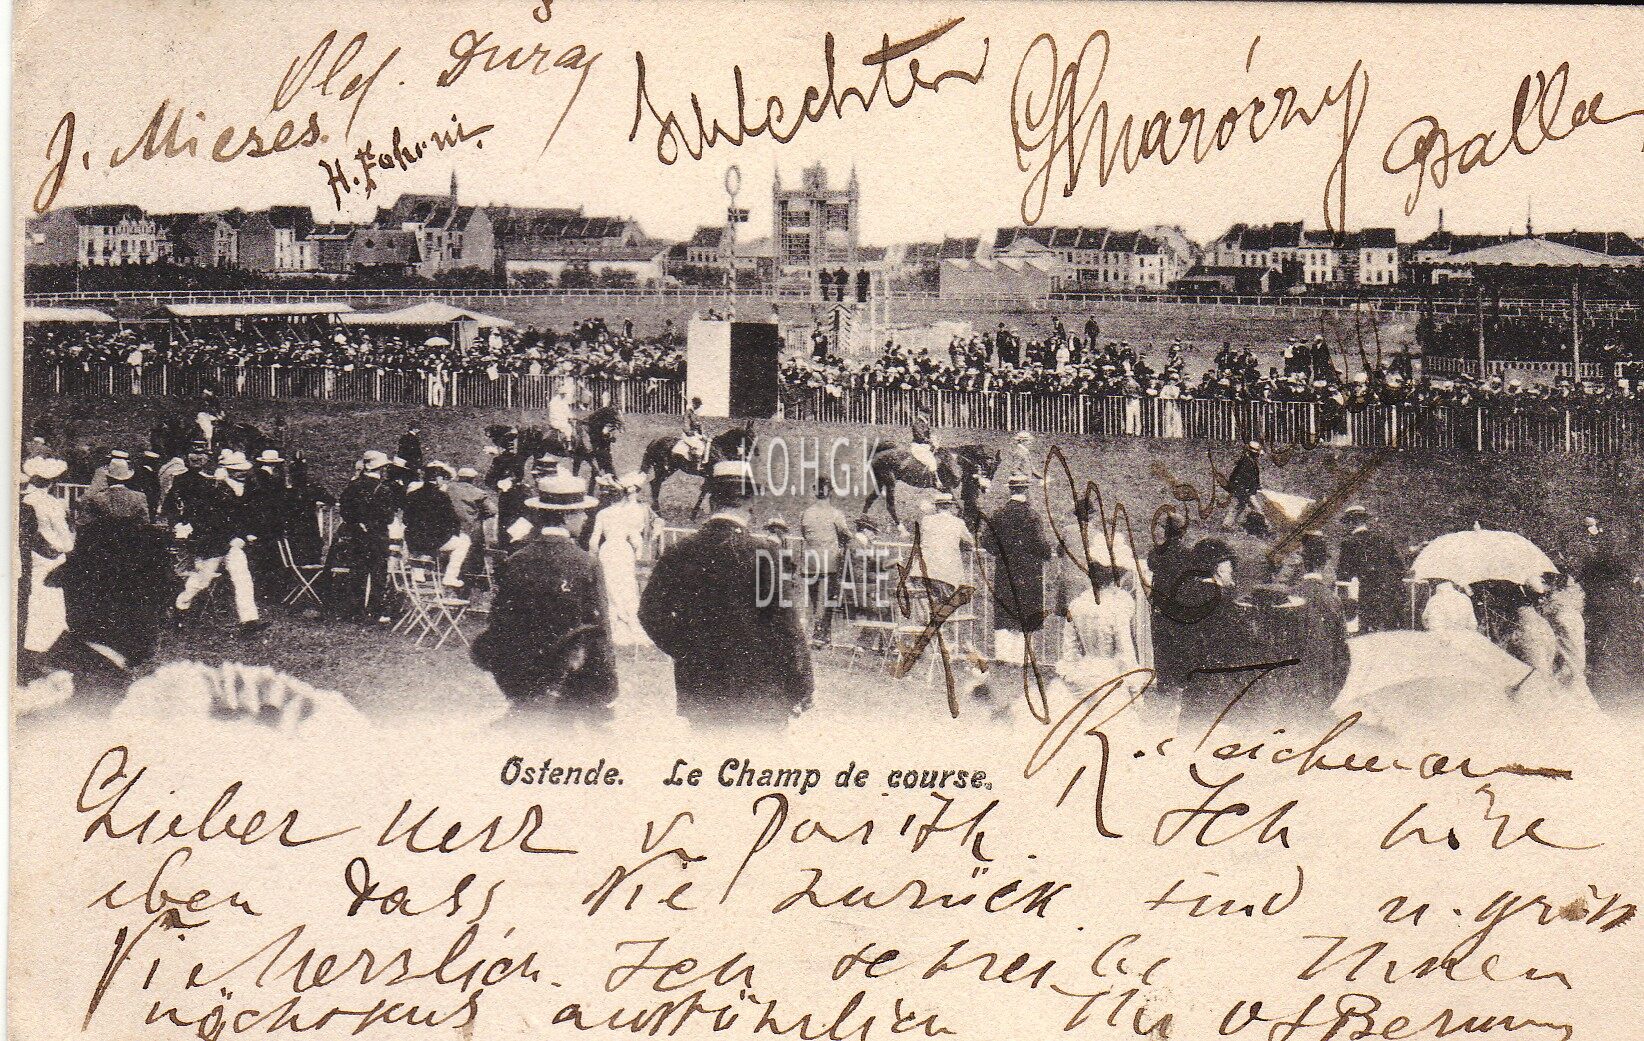 Old. Duras
J. Mieses.
H. Fahrni.
Schlechter
GMaróczy
Balla
K.O.H.G.K.
DE PLATE
F. J. Marshall
R. Teichmann
Ostende. Le Champ de course.
Lieber Herr v Ich höre
eben dass Sie zurück sind u. grüße
Sie Herzlich. Ich schreibe Ihnen
nächstens ausführlich Ihr OSBernstein